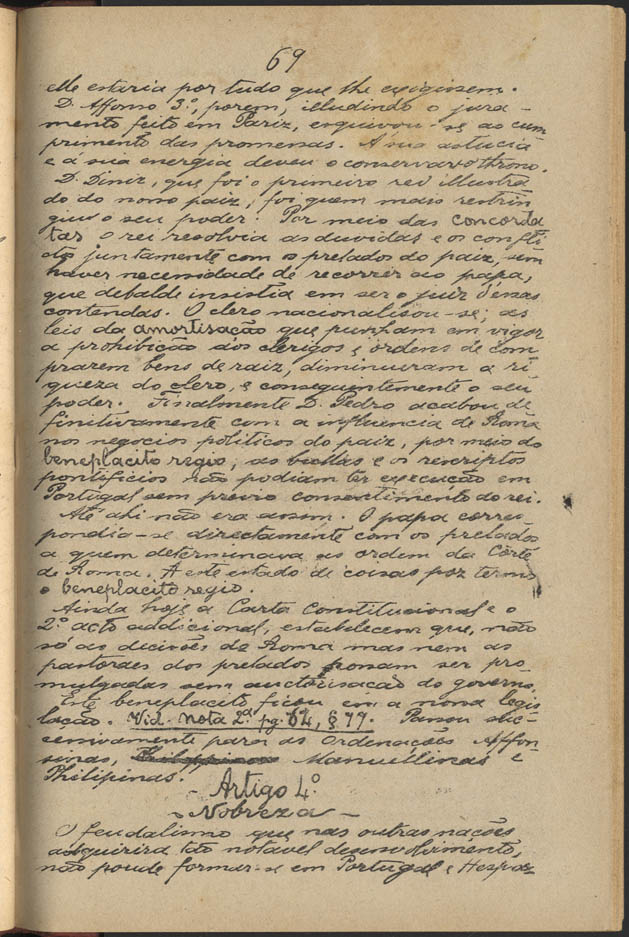 69
elle estaria por tudo que lhe exigissem.
D. Affonso 3º, porem, illudindo o jura-
mento feito em Pariz, esquivou-se ao cum
primento das promessas. Á sua astucia
e á sua energia deveu o conservar o throno.
D. Diniz, que foi o primeiro rei illustra
do do nosso paiz, foi quem mais restrin
giu o seu poder. Por meio das concorda
tas o rei resolvia as duvidas e os confli
ctos juntamente com os prelados do paiz, sem
haver necessidade de recorrer ao papa,
que debalde insistia em ser o juiz d'essas
contendas. O clero nacionalisou-se; as
leis da amortisação que punham em vigor
a prohibição aos clerigos e ordens de com
prarem bens de raiz, diminuiram a ri
queza do clero, e consequentemente o seu
poder. Finalmente D. Pedro acabou de
finitivamente com a influencia de Roma
nos negocios politicos do paiz, por meio do
beneplacito regio; as bullas e os rescriptos
pontificios não podiam ter execução em
Portugal sem previo consentimento do rei.
Até ahi não era assim. O papa corres
pondia-se directamente com os prelados
a quem determinava as ordens da Côrte
de Roma. A este estado de coisas poz termo
o beneplacito regio.
Ainda hoje a Carta Constitucional e o
2º acto addicional, estabelecem que, não
só as decisões de Roma mas nem as
pastoraes dos prelados possam ser pro
mulgadas sem auctorisação do governo.
Este beneplacito ficou em a nossa legis
lação. Vid. nota 2ª pg. 64, § 77. Passou suc-
cessivamente para as Ordenações Affon-
sinas, Manuellinas e
Philipinas.
- Artigo 4º
- Nobreza -
O feudalismo que nas outras nações
adquirira tão notavel desenvolvimento,
não poude formar-se em Portugal e Hespa-